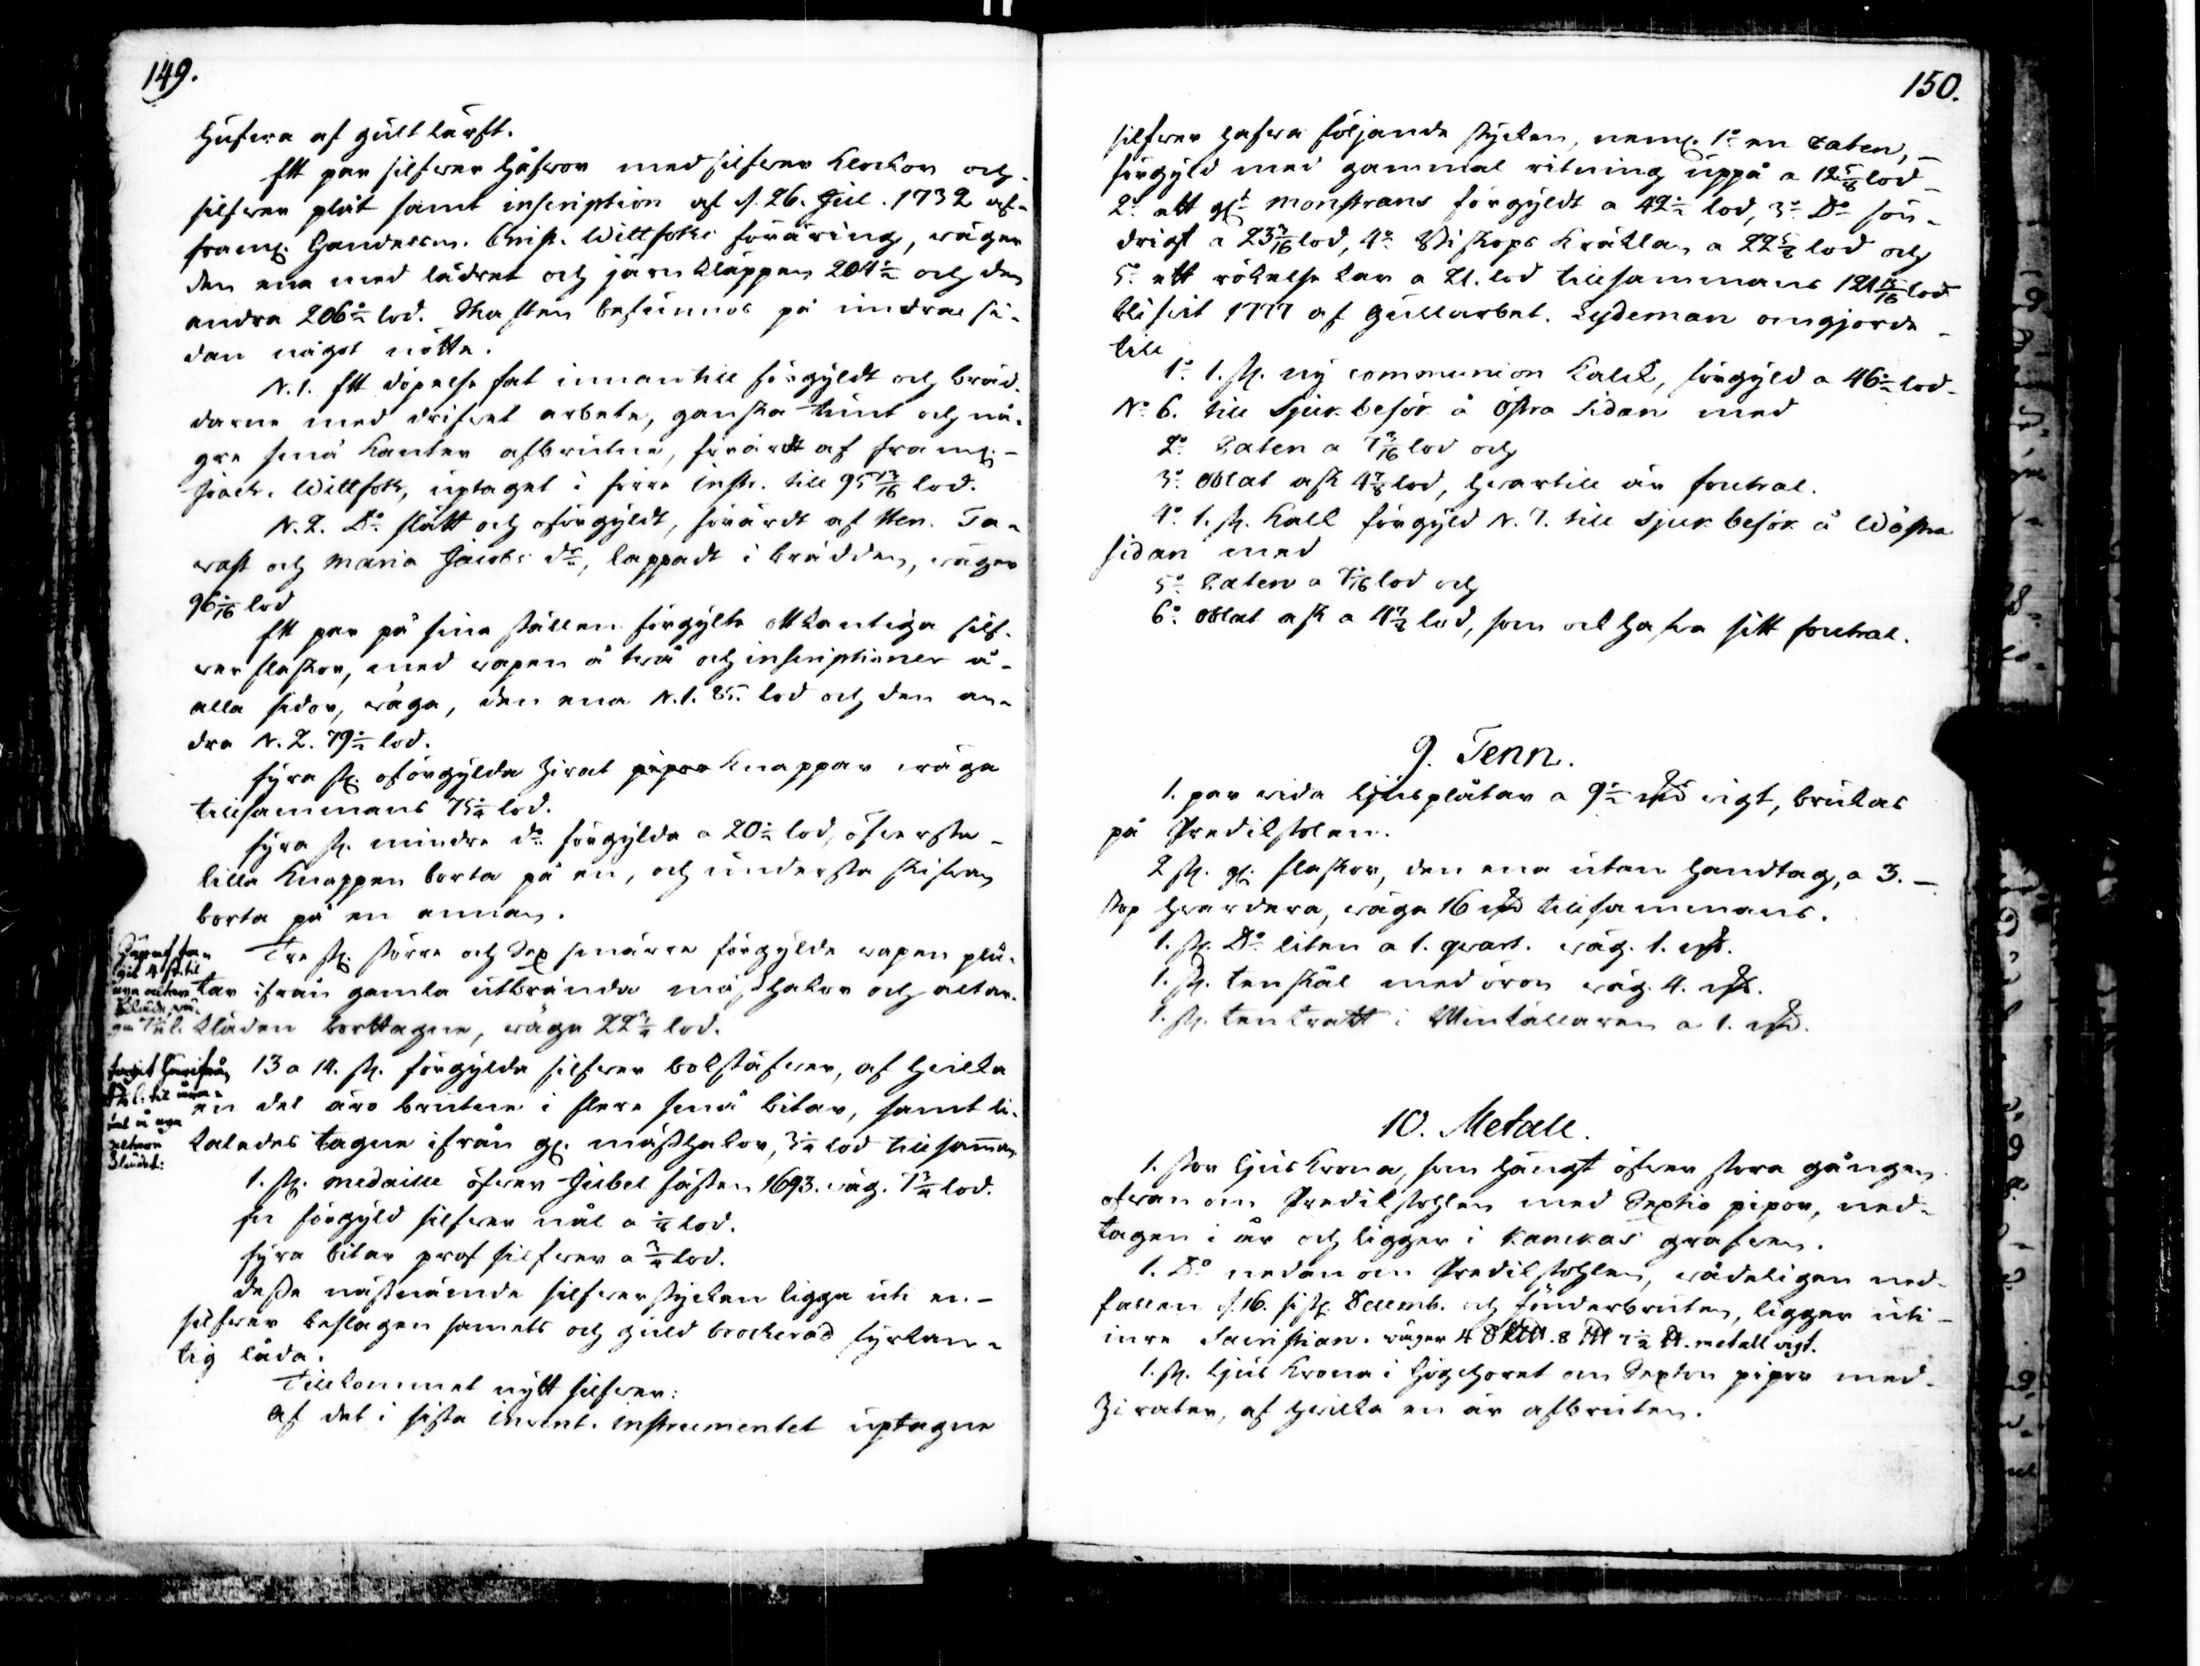 149.
hufwa af gult kärft.
Ett par silfwer håfwor med silfwer klockor och
silfwer plåt samt inscription af d. 26. Jul. 1732 af-
framl. Handelsm. Christ. Wittfoths föräring, wäger
den ena med lädret och järnkläppen 204 1/2 och den
andra 206 1/2 lod. Skaften befunnos på undra si-
dan något nötta.
N. 1. Ett döpelse fat innantill förgyldt och bräd-
darne med drifwet arbete, ganska tunt och nå-
gre små kanter afbrutne, förärdt af framl.
Joach. Wittfoth, uptaget i förre instr. till 95 13/16 lod.
N. 2. Do slätt och oförgyldt, förärdt af Hen. Ta-
wast och Maria Jacobs dr, lappadt i brädden, wäger
96 1/16 lod
Ett par på sina ställen förgylte ottkantiga silf-
wer flaskor, med wapen å twå och inscriptioner å
alla sidor, wäga, den ena N. 1. 85. lod och den an-
dra N. 2. 79 1/2 lod.
fyra st. oförgylda Zirat pipor knappar wäga
tillsammans 75 1/4 lod.
fyra st. mindre do förgylda a 20 1/2 lod, öfwersta
lilla knappen borta på en, och understa skifwan
borta på en annan.
Tre st. större och Sex smärre förgylde wapen plå-
tar ifrån gamla utbrända mässhakor och altar-
kläden borttagne, wäga 22 3/4 lod.
13 a 14. st. förgylde silfwer bokstäfwer, af hwilka
en del äro brutne i flere små bitar, samt li-
kaledes tagne ifrån gl. mässhakor, 3 1/4 lod tillsamman
1. st. medaille öfwer Jubel fästen 1693. wäg. 1 3/4 lod.
En förgyld silfwer nål a 1/8 lod.
fyra bitar prof silfwer a 3/4 lod.
desse nästnämde silfwerstycken ligga uti en
silfwer beslagen samets och guld brocherad fyrkan-
tig låda.
Tillkommet nytt silfwer:
Af det i sista invent. instrumentet uptagne
150.
silfwer hafwa följande stycken, neml. 1o en Paten,
förgyld med gammal ritning uppå a 12 5/8 lod
2o ett glt Monstrans förgyldt a 42 1/2 lod, 3o Do sön-
drigt a 23 3/16 lod, 4o Biskops Kräklan a 22 5/8 lod och
5o ett rökelse kar a 21. lod tillsammans 121 13/16 lod
blifwit 1777 af Gullarbet. Lydeman omgjorde
till
1o 1. st. ny communion Kalck, förgyld a 46 1/2 lod
No 6. till Sjukbesök å Östra Sidan med
2o Paten a 7 3/16 lod och
3o Oblat ask 4 7/8 lod, hwartill är foutral.
4o 1. st. Kalk förgyld N. 7. till Sjukbesök å Wästra
sidan med
5o Paten a 7 1/16 lod och
6o Oblat ask a 4 7/8 lod, som ock hafwa sitt foutral.
9. Tenn.
1. par wida ljusplåtar a 9 1/2 wigt, brukas
på Predikstolen.
2 st. gl. flaskor, den ena utan handtag, a 3.
stop hwardera, wäga 16 tillsammans.
1. st. Do liten a 1. quart. wäg. 1.
1. st. tenskål med öron wäg. 4.
1. st. ten tratt i Winkällaren a 1.
10. Metall.
1. stor ljus Krona, som hängt öfwer stora gången
ofwan om Predikstohlen med Sextio pipor, ned-
tagen i år och ligger i Kanckas grafwen.
1. Do nedan om Predikstohlen, wådeligen ned-
fallen d. 16. sistl. Decemb. och sönderbruten, ligger uti
inre Sacristian. wäger 4 8 7 1/2 metall wigt.
1. st. ljus Krona i högchoret om Sexton pipor med
Zirater, af hwilka en är afbruten.